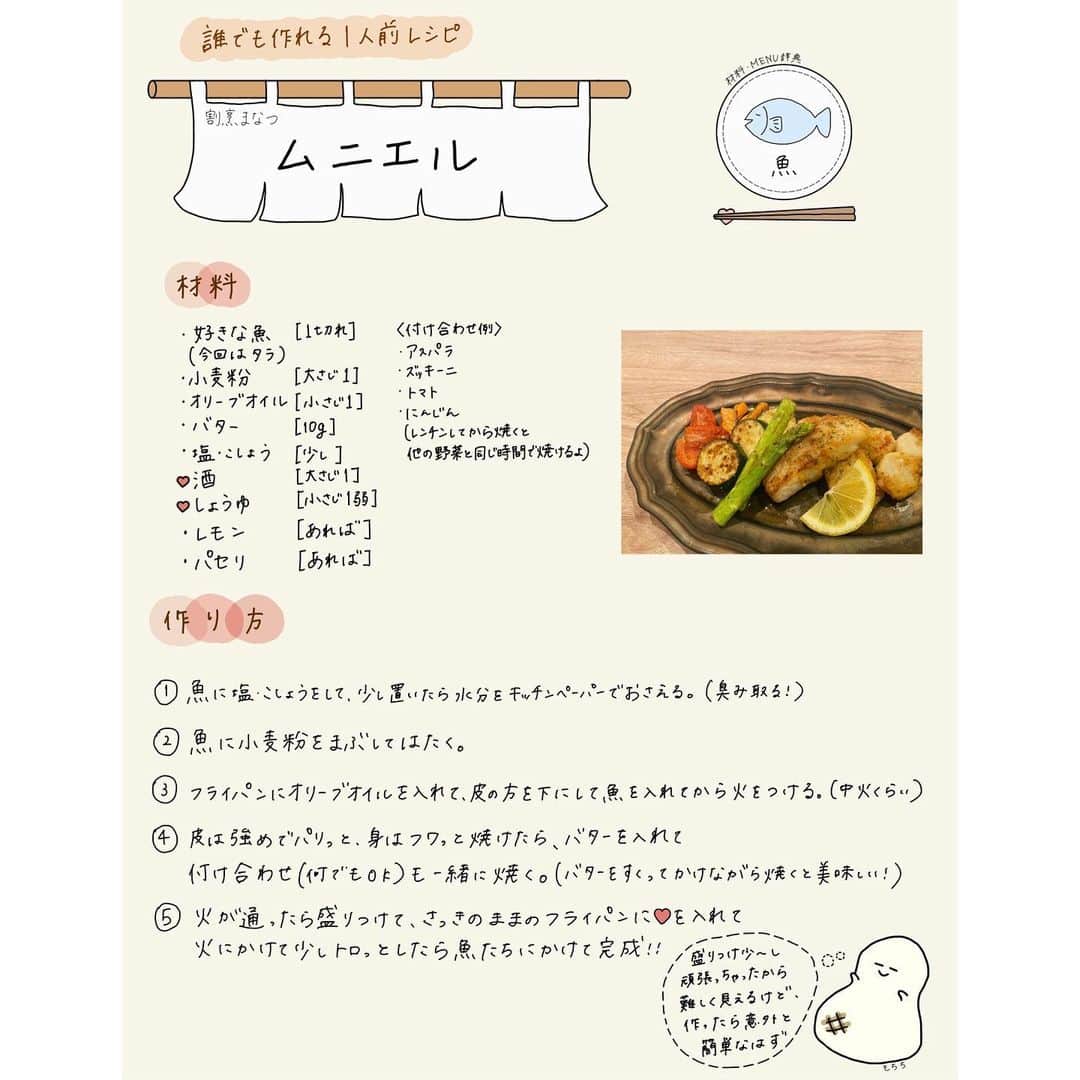 誰でも作れる1人前レシピ
割烹まなつ
ムニエル
材料・MENU辞典
魚
材料
・好きな魚 [1切れ]
(今回はタラ)
・小麦粉 [大さじ1]
・オリーブオイル [小さじ1]
・バター [10g]
・塩・こしょう [少し]
♥酒 [大さじ1]
♥しょうゆ [小さじ1弱]
・レモン [あれば]
・パセリ [あれば]
〈付け合わせ例〉
・アスパラ
・ズッキーニ
・トマト
・にんじん
(レンチンしてから焼くと
他の野菜と同じ時間で焼けるよ)
作り方
① 魚に塩・こしょうをして、少し置いたら水分をキッチンペーパーでおさえる。(臭み取る!)
② 魚に小麦粉をまぶしてはたく。
③ フライパンにオリーブオイルを入れて、皮の方を下にして魚を入れてから火をつける。(中火くらい)
④ 皮は強めでパリっと、身はフワっと焼けたら、バターを入れて
付け合わせ(何でもOK)も一緒に焼く。(バターをすくってかけながら焼くと美味しい!)
⑤ 火が通ったら盛りつけて、さっきのままのフライパンに♥を入れて
火にかけて少しトロっとしたら魚たちにかけて完成!!
盛りつけ少〜し
頑張っちゃったから
難しく見えるけど、
作ったら意外と
簡単なはず